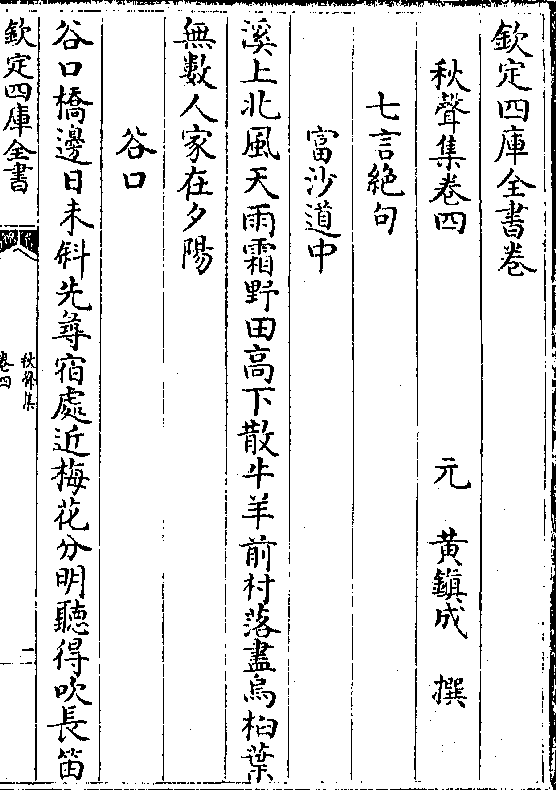 欽定四庫全書卷
秋聲集卷四 元 黃鎮成 撰
七言絶句
富沙道中
溪上北風天雨霜野田高下散牛羊前村落盡烏桕葉
無數人家在夕陽
谷口
谷口橋邊日未斜先尋宿處近梅花分明聽得吹長笛
欽定四庫全書
秋聲集
卷四
二